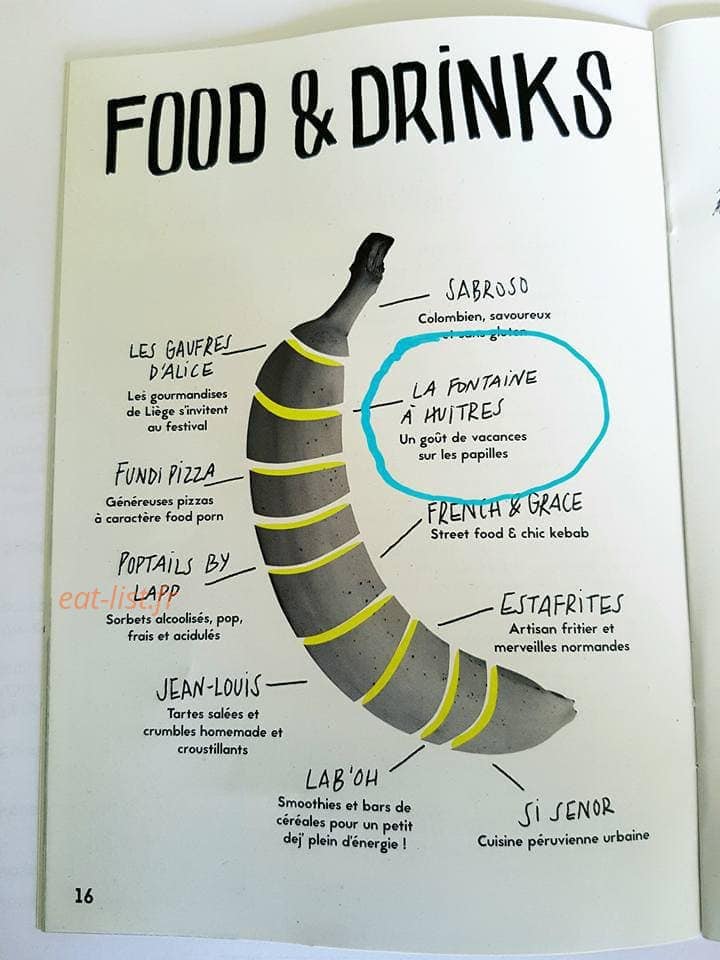 FOOD & DRINKS
SABROSO
Colombien, savoureux
et sans gluten
LES GAUFRES
D'ALICE
Les gourmandises
de Liège s'invitent
au festival
LA FONTAINE
À HUITRES
Un goût de vacances
sur les papilles
FUNDI PIZZA
Généreuses pizzas
à caractère food porn
FRENCH & GRACE
Street food & chic kebab
POPTAILS BY
LAPP
eat-list.fr
Sorbets alcoolisés, pop,
frais et acidulés
ESTAFRITES
Artisan fritier et
merveilles normandes
JEAN-LOUIS
Tartes salées et
crumbles homemade et
croustillants
LAB'OH
Smoothies et bars de
céréales pour un petit
dej' plein d'énergie !
SI SENOR
Cuisine péruvienne urbaine
16